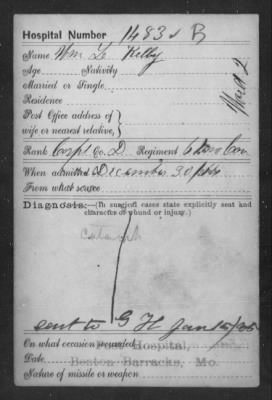 Hospital Number 1483
Name Wm L Kelly
Ward 2
Age Nativity
Married or Single
Residence
Post Office address of
wife or nearest relative,
Rank Corpl Co. D Regiment 6
When admitted December 30/64
From what source
Diagnosis:—(In surgical cases state explicitly seat and
character of wound or injury.)
sent to G H Jan
On what occasion wounded
Hospital,
Date
Benton Barracks, Mo.
Nature of missile or weapon